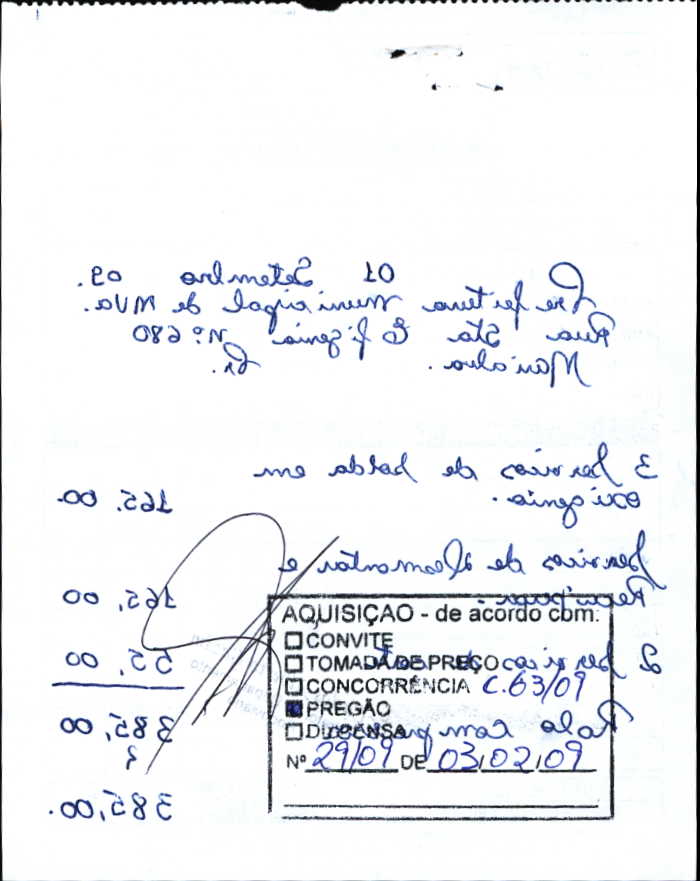 01 Setembro 09.
Prefeitura municipal de MVA.
Rua Sta Efigenia Nº 680
Marialva. Pr.
3 Servicos de solda em
oxigenio. 165,00
Servicos de Desmontar e
165,00
2 Servicos de 55,00
Rolo com 385,00
385,00.
AQUISIÇÃO - de acordo com:
CONVITE
TOMADA DE PREÇO
CONCORRÊNCIA C.63/09
PREGÃO
DISPENSA
Nº 29/09 DE 03/02/09